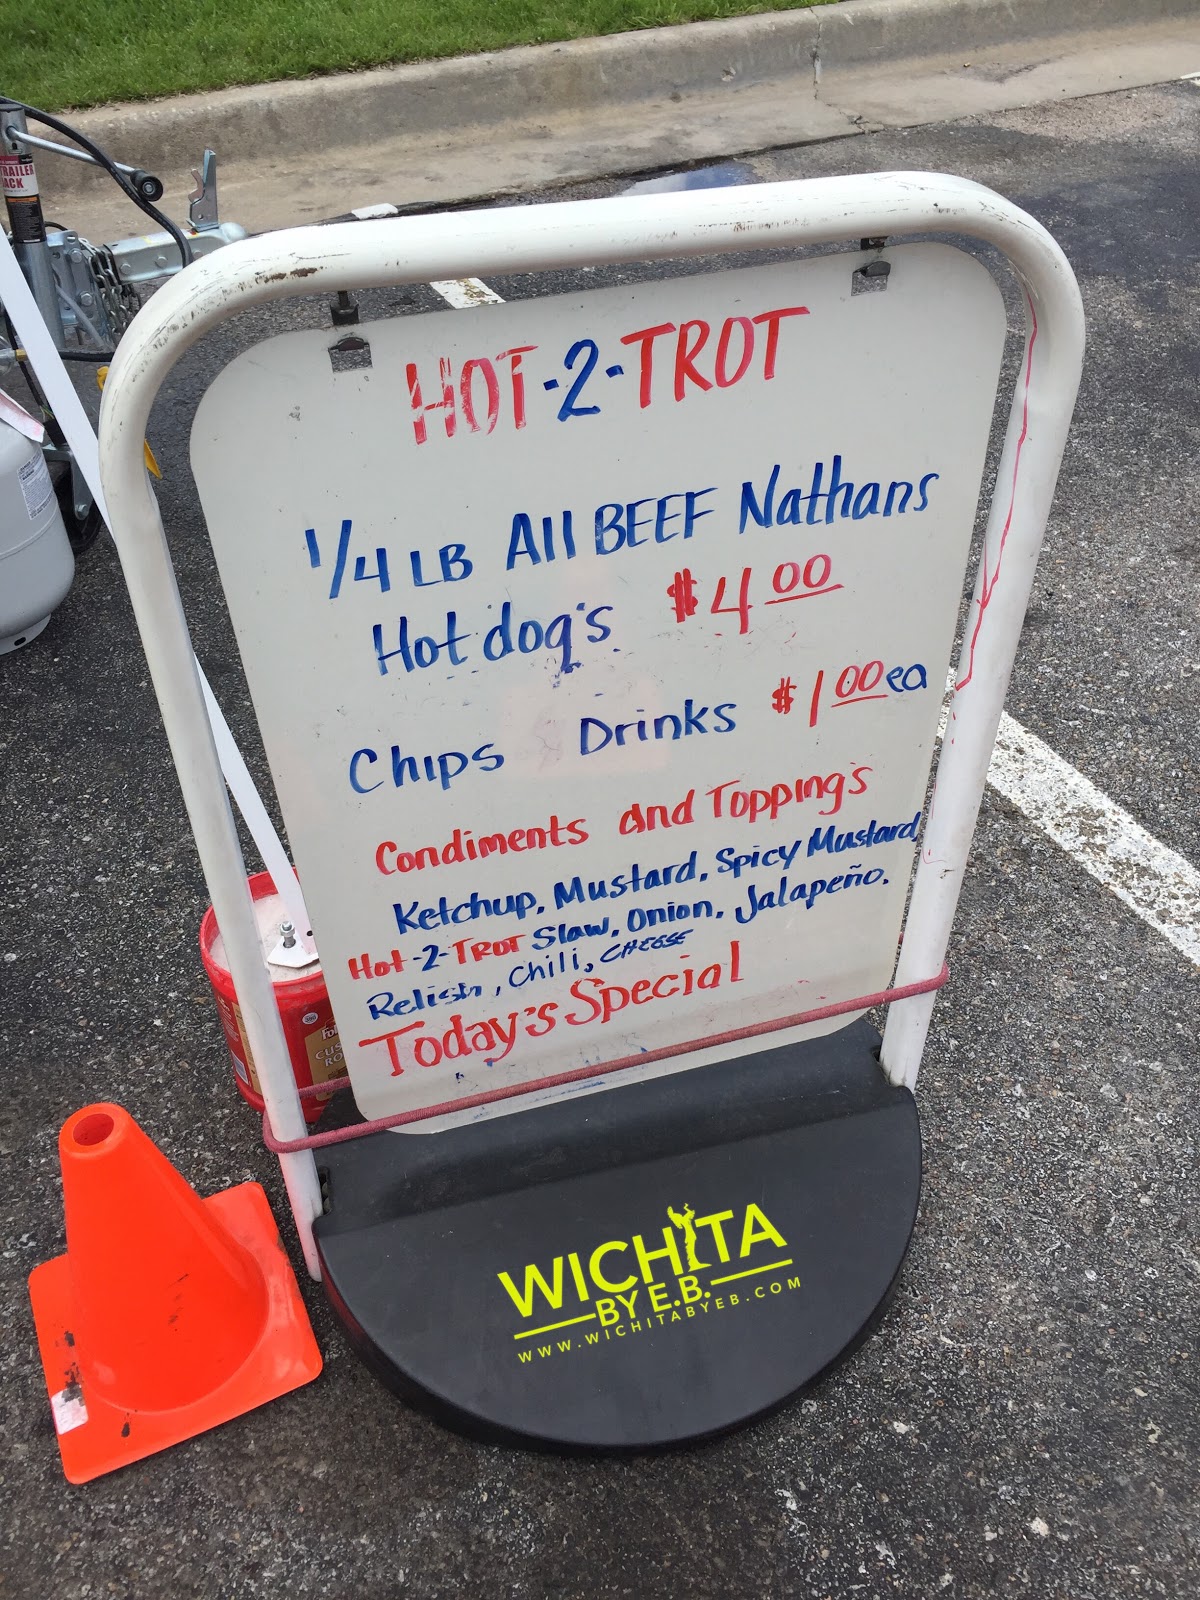 HOT-2-TROT
1/4 LB All BEEF Nathans
Hot dog's $4.00
Chips Drinks $1.00 ea
Condiments and Topping's
Ketchup, Mustard, Spicy Mustard,
Hot-2-TROT Slaw, Onion, Jalapeño.
Relish, Chili, CHEESE
Today's Special
WICHITA
BY E.B.
WWW.WICHITABYEB.COM
TRAILER
JACK